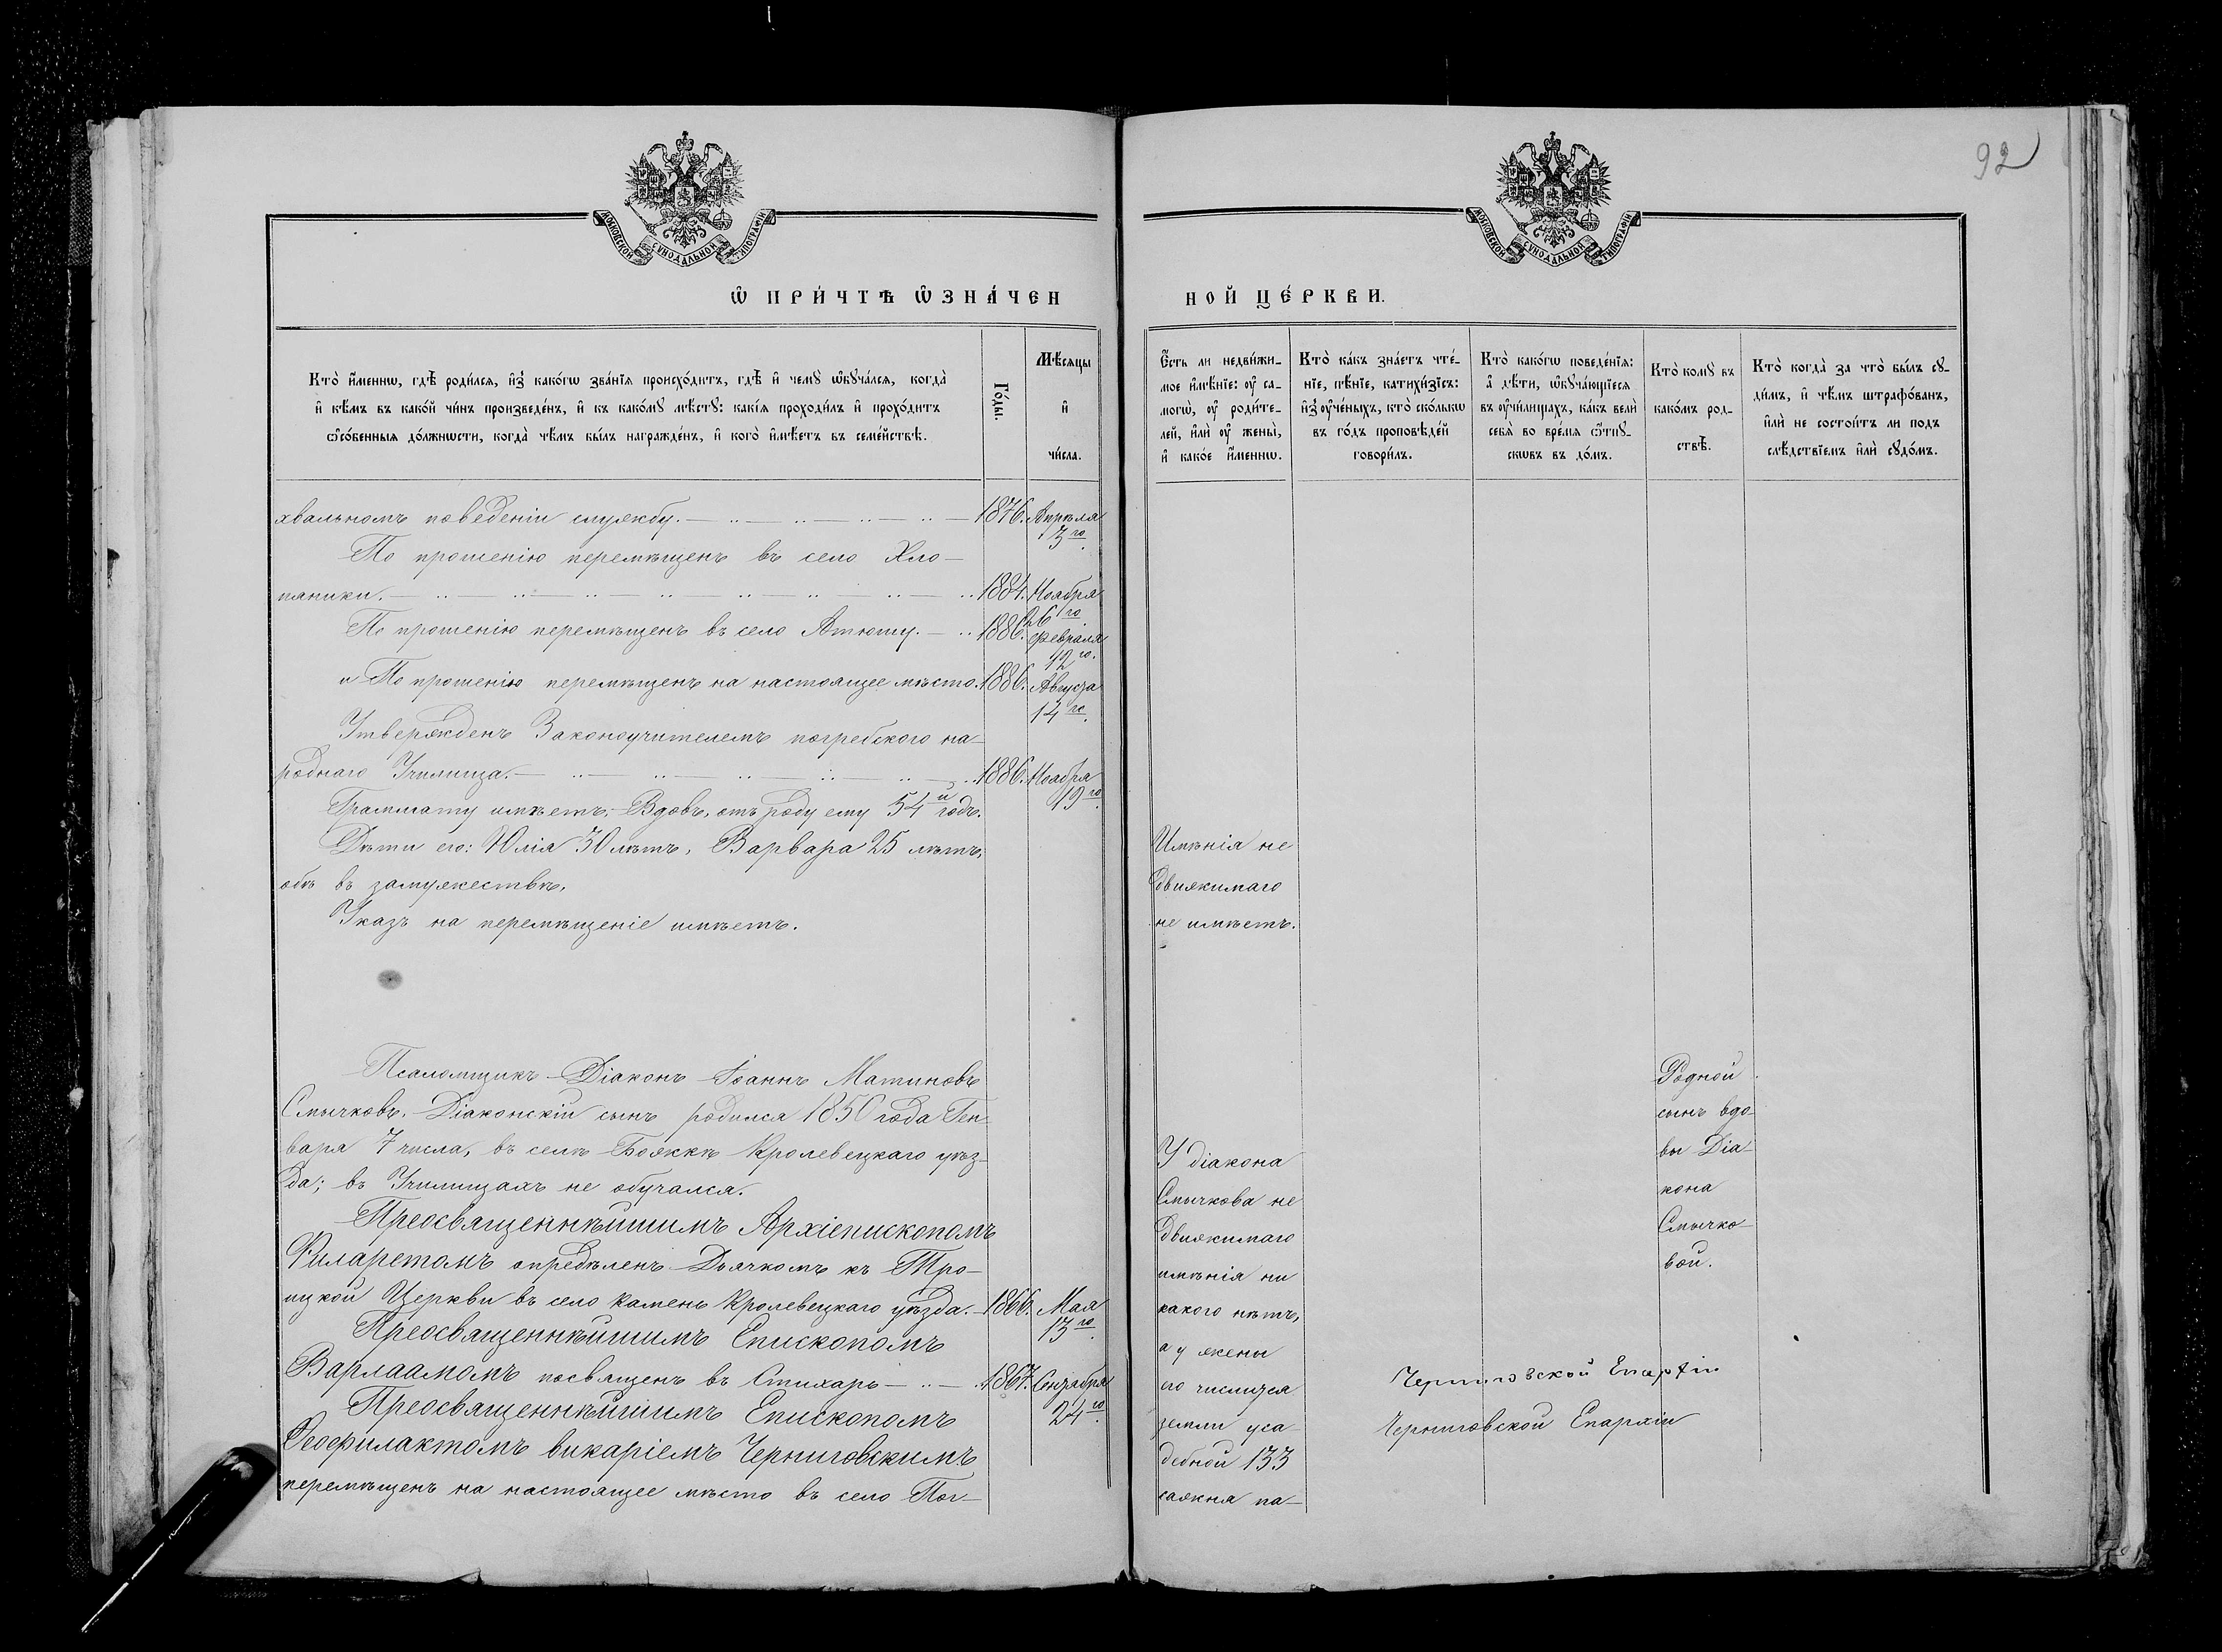 92
МОСКОВСКОЙ СѴНОДАЛЬНОЙ ТИПОГРАФІИ
МОСКОВСКОЙ СѴНОДАЛЬНОЙ ТИПОГРАФІИ
Ѡ ПРИ́ЧТѢ ѠЗНА́ЧЕН
НОЙ ЦЕ́РКВИ.
Кто̀ и҆́меннѡ, гдѣ̀ роди́лсѧ, и҆з̾ како́гѡ зва́нїѧ происхо́дитъ, гдѣ̀ и҆ чемꙋ̀ ѡ҆бꙋча́лсѧ, когда̀
и҆ кѣ́мъ въ како́й чи́нъ произведе́нъ, и҆ къ како́мꙋ мѣ́стꙋ: какі́ѧ проходи́лъ и҆ прохо́дитъ
ѻ҆со́бенныѧ до́лжнѡсти, когда̀ чѣ́мъ бы́лъ награжде́нъ, и҆ кого̀ и҆мѣ́етъ въ семе́йствѣ.
Го́ды.
Мѣ́сѧцы
и҆
чи́сла.
Є҆́сть ли недви́жи-
мое и҆мѣ́нїе: ᲂу҆ са-
могѡ̀, ᲂу҆ роди́те-
лей, и҆лѝ ᲂу҆ жены̀,
и҆ како́е и҆́меннѡ.
Кто̀ ка́къ зна́етъ чте́-
нїе, пѣ́нїе, катихи́зїсъ:
и҆з̾ ᲂу҆че́ныхъ, кто̀ ско́лькѡ
въ го́дъ проповѣ́дей
говори́лъ.
Кто̀ како́гѡ поведе́нїѧ:
а҆ дѣ́ти, ѡ҆бꙋча́ющїесѧ
въ ᲂу҆чи́лищахъ, ка́къ велѝ
себѧ̀ во вре́мѧ ѿпꙋ-
скѡвъ въ до́мъ.
Кто̀ комꙋ̀ въ
како́мъ род-
ствѣ̀.
Кто̀ когда̀ за что̀ бы́лъ сꙋ-
ди́мъ, и҆ чѣ́мъ штрафо́ванъ,
и҆лѝ не состои́тъ ли подъ
слѣ́дствїемъ и҆лѝ сꙋдо́мъ.
хвальномъ поведеніи службу. 1876. Апрѣля
3го.
По прошенію перемѣщенъ въ село Хло-
пяники. 1884. Ноября
26го.
По прошенію перемѣщенъ въ село Атюшу. 1886. Февраля
12го.
и По прошенію перемѣщенъ на настоящее мѣсто. 1886. Августа
14го.
Утвержденъ Законоучителемъ погребского на-
роднаго Училища. 1886. Ноября
19го.
Граммату имѣетъ. Вдовъ, отъ роду ему 54й годъ.
Дѣти его: Юлія 30 лѣтъ, Варвара 25 лѣтъ,
обѣ въ замужествѣ.
Указъ на перемѣщеніе имѣетъ.
Имѣнія не
движимаго
не имѣетъ.
Псаломщикъ Діаконъ Іоаннъ Матиновъ
Смычковъ. Діаконскій сынъ родился 1850 года Ген-
варя 7 числа, въ селѣ Божкѣ Кролевецкаго уѣз-
да; въ Училищахъ не обучался.
Преосвященнѣйшимъ Архіепископомъ
Филаретомъ опредѣленъ Дьячкомъ къ Тро-
ицкой Церкви въ село Камень Кролевецкаго уѣзда. 1866. Мая
13го.
Преосвященнѣйшимъ Епископомъ
Варлаамомъ посвященъ въ Стихарь 1867. Сентября
24го.
Преосвященнѣйшимъ Епископомъ
Ѳеофилактомъ викаріемъ Черниговскимъ
перемѣщенъ на настоящее мѣсто въ село Пог-
У діакона
Смычкова не
движимаго
имѣнія ни
какого нѣтъ,
а у жены
его числится
земли уса-
дебной 133
сажня па-
Родной
сынъ вдо-
вы Діа-
кона
Смычко-
вой.
Черниговской Епархіи
Черниговской Епархіи